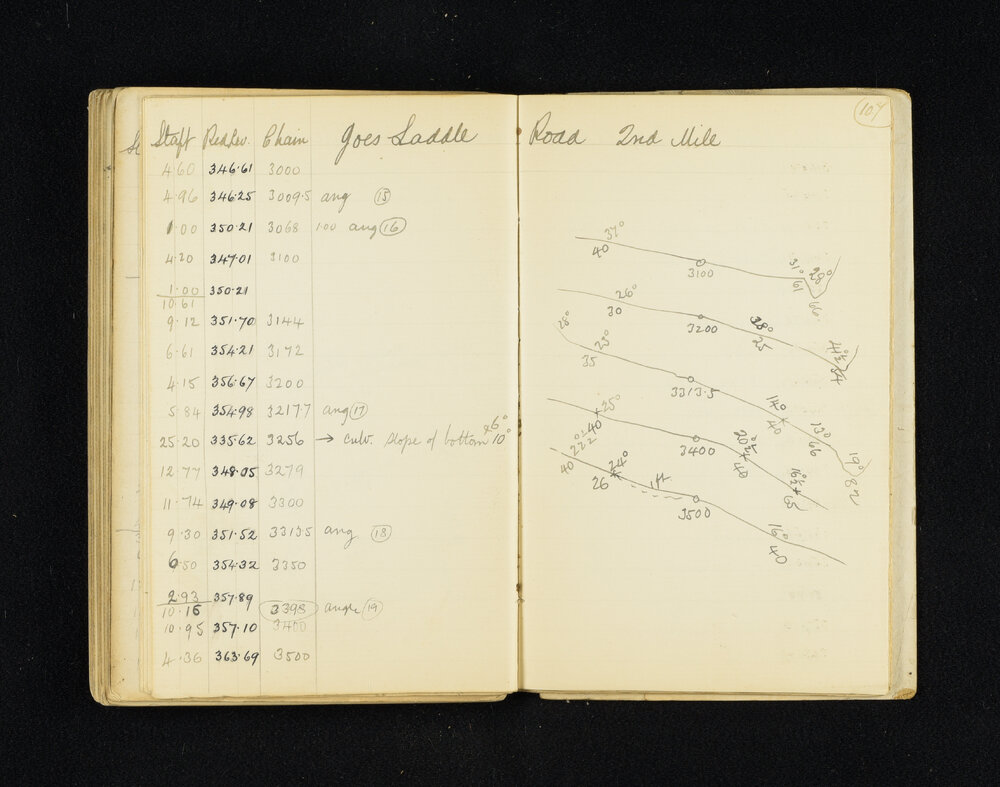 Staff Red Lev. Chain Goes Saddle Road 2nd Mile
107
4.60 346.61 3000
4.96 346.25 3009.5 ang 15
1.00 350.21 3068 1.00 ang 16
4.20 347.01 3100
1.00 350.21
10.61
9.12 351.70 3144
6.61 354.21 3172
4.15 356.67 3200
5.84 354.98 3217.7 ang 17
25.20 335.62 3256 → culv. slope of bottom 10°
12.77 348.05 3279
11.74 349.08 3300
9.30 351.52 3313.5 ang 18
6.50 354.32 3350
2.93 357.89
10.16 3398 angle 19
10.95 357.10 3400
4.36 363.69 3500
37°
40
3100
31°
61
28°
66
26°
30
3200
38°
25
28°
23°
35
3313.5
14°
40
13°
66
19°
82
25°
40
3400
20
40
16½
65
22½°
40
24°
26
3500
16°
40